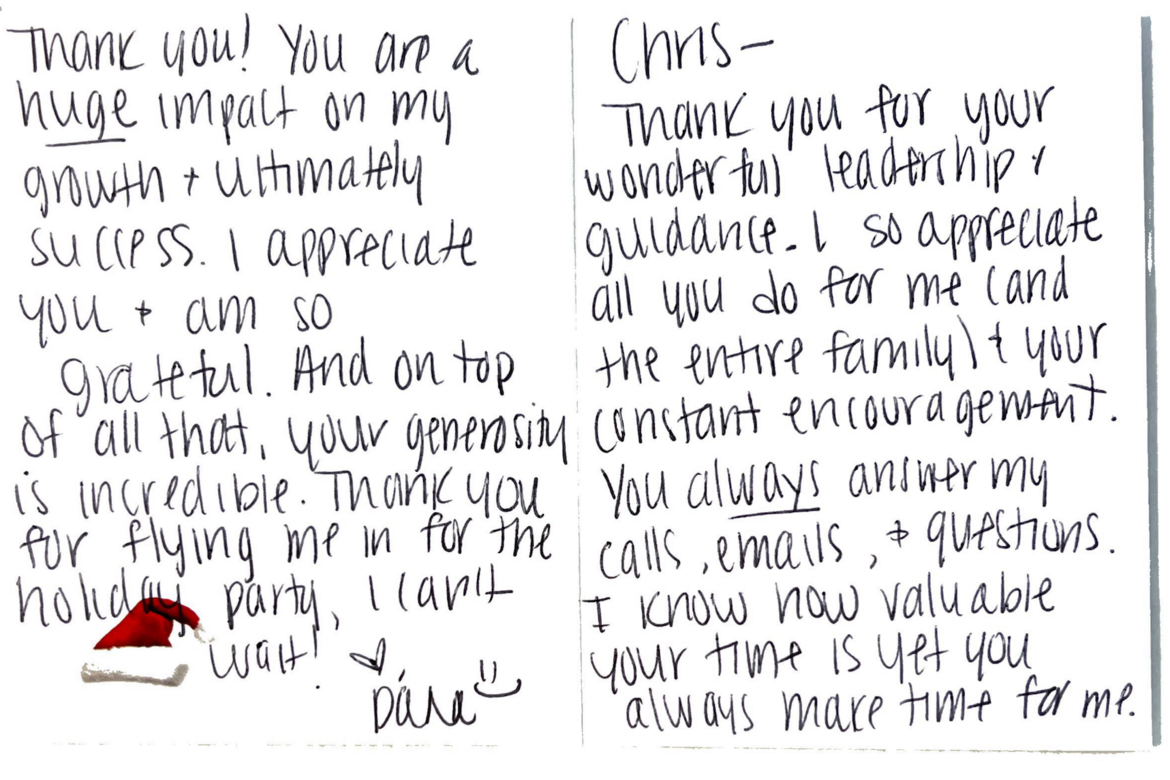 Chris—
Thank you for your
wonderful leadership &
guidance. I so appreciate
all you do for me (and
the entire family) & your
constant encouragement.
You always answer my
calls, emails, & questions.
I know how valuable
your time is yet you
always make time for me.
Thank you! You are a
huge impact on my
growth + ultimately
success. I appreciate
you + am so
grateful. And on top
of all that, your generosity
is incredible. Thank you
for flying me in for the
holiday party, I can't
wait!
Dána